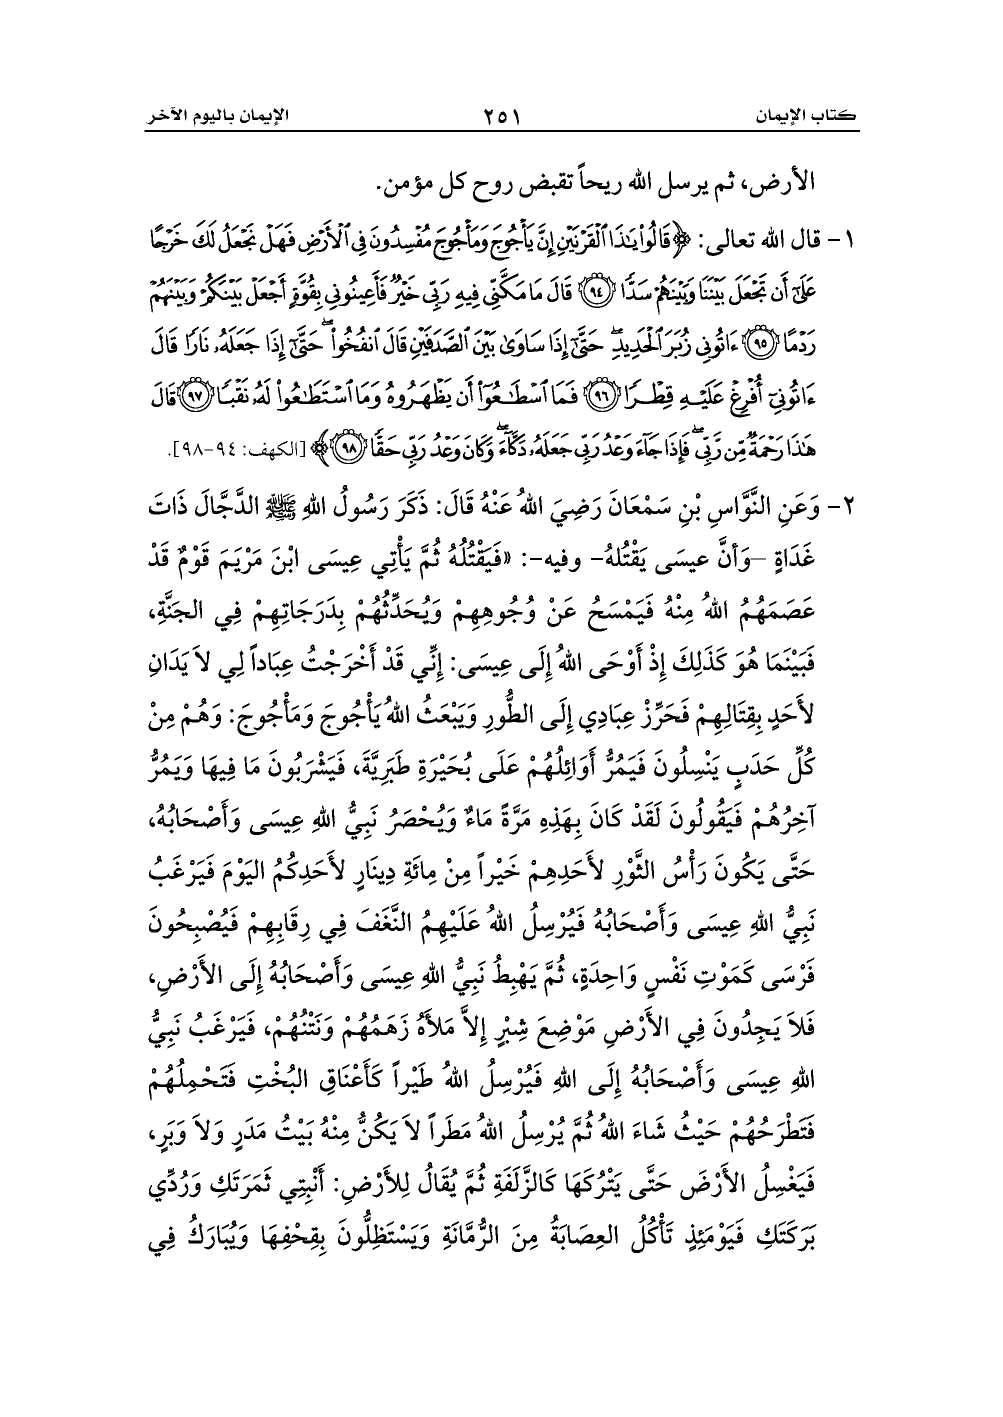 كتاب الإيمان ٢٥١ الإيمان باليوم الآخر
الأرض، ثم يرسل الله ريحاً تقبض روح كل مؤمن.
١- قال الله تعالى: ﴿قَالُوا۟ يَـٰذَا ٱلْقَرْنَيْنِ إِنَّ يَأْجُوجَ وَمَأْجُوجَ مُفْسِدُونَ فِى ٱلْأَرْضِ فَهَلْ نَجْعَلُ لَكَ خَرْجًا
عَلَىٰٓ أَن تَجْعَلَ بَيْنَنَا وَبَيْنَهُمْ سَدًّا ۝٩٤ قَالَ مَا مَكَّنِّى فِيهِ رَبِّى خَيْرٌ فَأَعِينُونِى بِقُوَّةٍ أَجْعَلْ بَيْنَكُمْ وَبَيْنَهُمْ
رَدْمًا ۝٩٥ ءَاتُونِى زُبَرَ ٱلْحَدِيدِ ۖ حَتَّىٰٓ إِذَا سَاوَىٰ بَيْنَ ٱلصَّدَفَيْنِ قَالَ ٱنفُخُوا۟ ۖ حَتَّىٰٓ إِذَا جَعَلَهُۥ نَارًا قَالَ
ءَاتُونِىٓ أُفْرِغْ عَلَيْهِ قِطْرًا ۝٩٦ فَمَا ٱسْطَـٰعُوٓا۟ أَن يَظْهَرُوهُ وَمَا ٱسْتَطَـٰعُوا۟ لَهُۥ نَقْبًا ۝٩٧ قَالَ
هَـٰذَا رَحْمَةٌ مِّن رَّبِّى ۖ فَإِذَا جَآءَ وَعْدُ رَبِّى جَعَلَهُۥ دَكَّآءَ ۖ وَكَانَ وَعْدُ رَبِّى حَقًّا ۝٩٨﴾ [الكهف: ٩٤-٩٨].
٢- وَعَنِ النَّوَّاسِ بْنِ سَمْعَانَ رَضِيَ اللهُ عَنْهُ قَالَ: ذَكَرَ رَسُولُ اللهِ ﷺ الدَّجَّالَ ذَاتَ
غَدَاةٍ –وَأنَّ عيسَى يَقْتُلهُ– وفيه–: «فَيَقْتُلُهُ ثُمَّ يَأْتِي عِيسَى ابْنَ مَرْيَمَ قَوْمٌ قَدْ
عَصَمَهُمُ اللهُ مِنْهُ فَيَمْسَحُ عَنْ وُجُوهِهِمْ وَيُحَدِّثُهُمْ بِدَرَجَاتِهِمْ فِي الجَنَّةِ،
فَبَيْنَمَا هُوَ كَذَلِكَ إِذْ أَوْحَى اللهُ إِلَى عِيسَى: إِنِّي قَدْ أَخْرَجْتُ عِبَاداً لِي لاَ يَدَانِ
لأَحَدٍ بِقِتَالِهِمْ فَحَرِّزْ عِبَادِي إِلَى الطُّورِ وَيَبْعَثُ اللهُ يَأْجُوجَ وَمَأْجُوجَ: وَهُمْ مِنْ
كُلِّ حَدَبٍ يَنْسِلُونَ فَيَمُرُّ أَوَائِلُهُمْ عَلَى بُحَيْرَةِ طَبَرِيَّةَ، فَيَشْرَبُونَ مَا فِيهَا وَيَمُرُّ
آخِرُهُمْ فَيَقُولُونَ لَقَدْ كَانَ بِهَذِهِ مَرَّةً مَاءٌ وَيُحْصَرُ نَبِيُّ اللهِ عِيسَى وَأَصْحَابُهُ،
حَتَّى يَكُونَ رَأْسُ الثَّوْرِ لأَحَدِهِمْ خَيْراً مِنْ مِائَةِ دِينَارٍ لأَحَدِكُمُ اليَوْمَ فَيَرْغَبُ
نَبِيُّ اللهِ عِيسَى وَأَصْحَابُهُ فَيُرْسِلُ اللهُ عَلَيْهِمُ النَّغَفَ فِي رِقَابِهِمْ فَيُصْبِحُونَ
فَرْسَى كَمَوْتِ نَفْسٍ وَاحِدَةٍ، ثُمَّ يَهْبِطُ نَبِيُّ اللهِ عِيسَى وَأَصْحَابُهُ إِلَى الأَرْضِ،
فَلاَ يَجِدُونَ فِي الأَرْضِ مَوْضِعَ شِبْرٍ إِلاَّ مَلأَهُ زَهَمُهُمْ وَنَتْنُهُمْ، فَيَرْغَبُ نَبِيُّ
اللهِ عِيسَى وَأَصْحَابُهُ إِلَى اللهِ فَيُرْسِلُ اللهُ طَيْراً كَأَعْنَاقِ البُخْتِ فَتَحْمِلُهُمْ
فَتَطْرَحُهُمْ حَيْثُ شَاءَ اللهُ ثُمَّ يُرْسِلُ اللهُ مَطَراً لاَ يَكُنُّ مِنْهُ بَيْتُ مَدَرٍ وَلاَ وَبَرٍ،
فَيَغْسِلُ الأَرْضَ حَتَّى يَتْرُكَهَا كَالزَّلَفَةِ ثُمَّ يُقَالُ لِلأَرْضِ: أَنْبِتِي ثَمَرَتَكِ وَرُدِّي
بَرَكَتَكِ فَيَوْمَئِذٍ تَأْكُلُ العِصَابَةُ مِنَ الرُّمَّانَةِ وَيَسْتَظِلُّونَ بِقِحْفِهَا وَيُبَارَكُ فِي